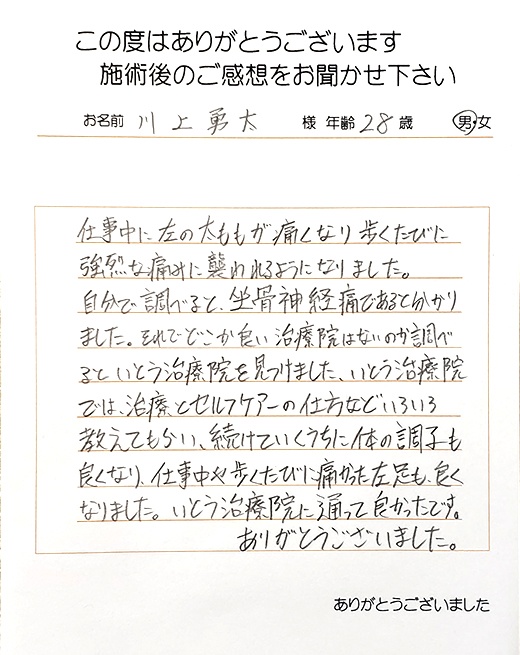 この度はありがとうございます
施術後のご感想をお聞かせ下さい
お名前 川上勇太 様 年齢 28 歳 男・女
仕事中に左の太ももが痛くなり歩くたびに
強烈な痛みに襲われるようになりました。
自分で調べると、坐骨神経痛であると分かり
ました。それでどこか良い治療院はないのか調べ
るといとう治療院を見つけました、いとう治療院
では、治療とセルフケアーの仕方などいろいろ
教えてもらい、続けていくうちに体の調子も
良くなり、仕事中や歩くたびに痛かった左足も、良く
なりました。いとう治療院に通って良かったです。
ありがとうございました。
ありがとうございました